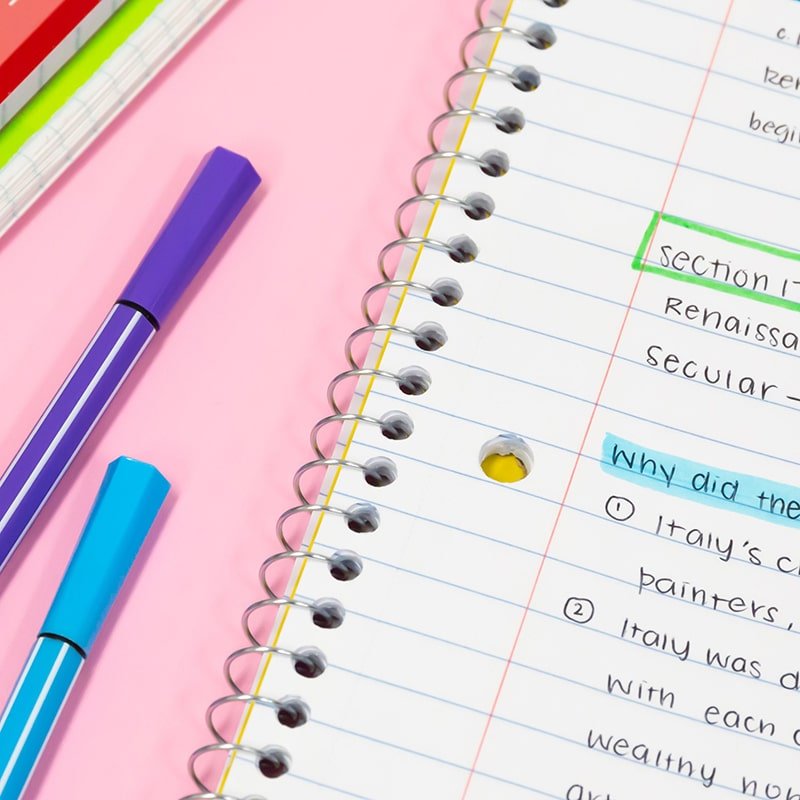 section 1
Renaissa
secular -
why did the
① Italy's c
painters,
② Italy was d
with each
wealthy non